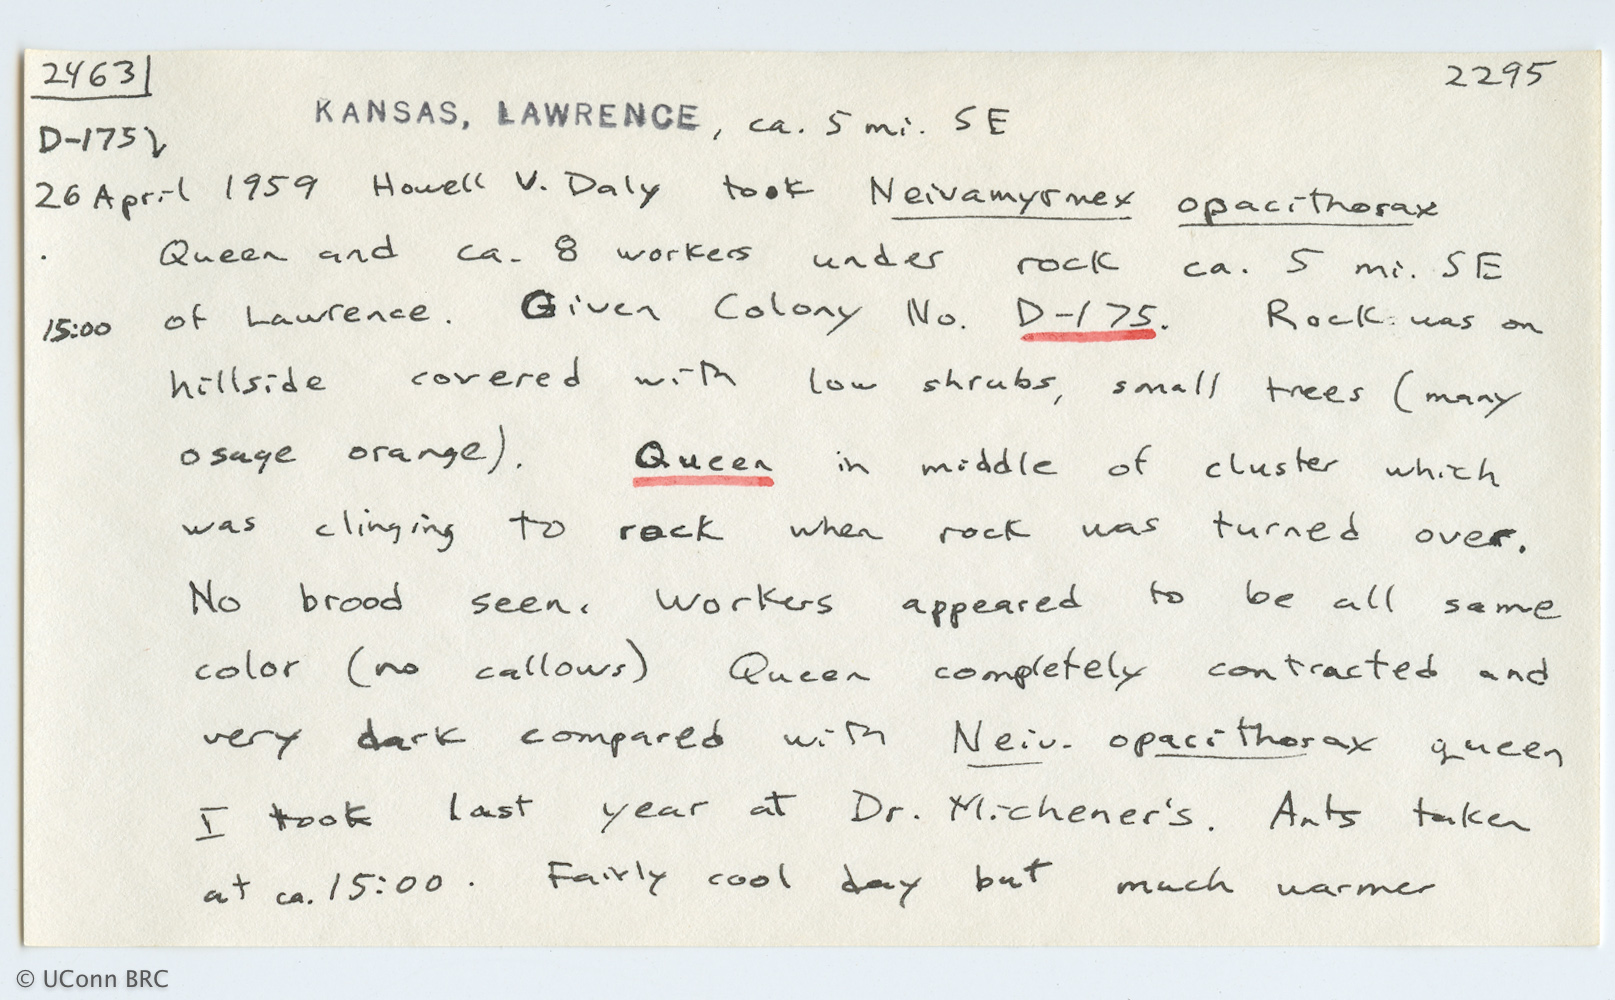 2463
2295
KANSAS, LAWRENCE, ca. 5 mi. SE
D-175
26 April 1959 Howell V. Daly took Neivamyrmex opacithorax
Queen and ca. 8 workers under rock ca. 5 mi. SE
15:00 of Lawrence. Given Colony No. D-175. Rock was on
hillside covered with low shrubs, small trees (many
osage orange). Queen in middle of cluster which
was clinging to rock when rock was turned over.
No brood seen. Workers appeared to be all same
color (no callows) Queen completely contracted and
very dark compared with Neiv. opacithorax queen
I took last year at Dr. Michener's. Ants taken
at ca. 15:00. Fairly cool day but much warmer
© UConn BRC